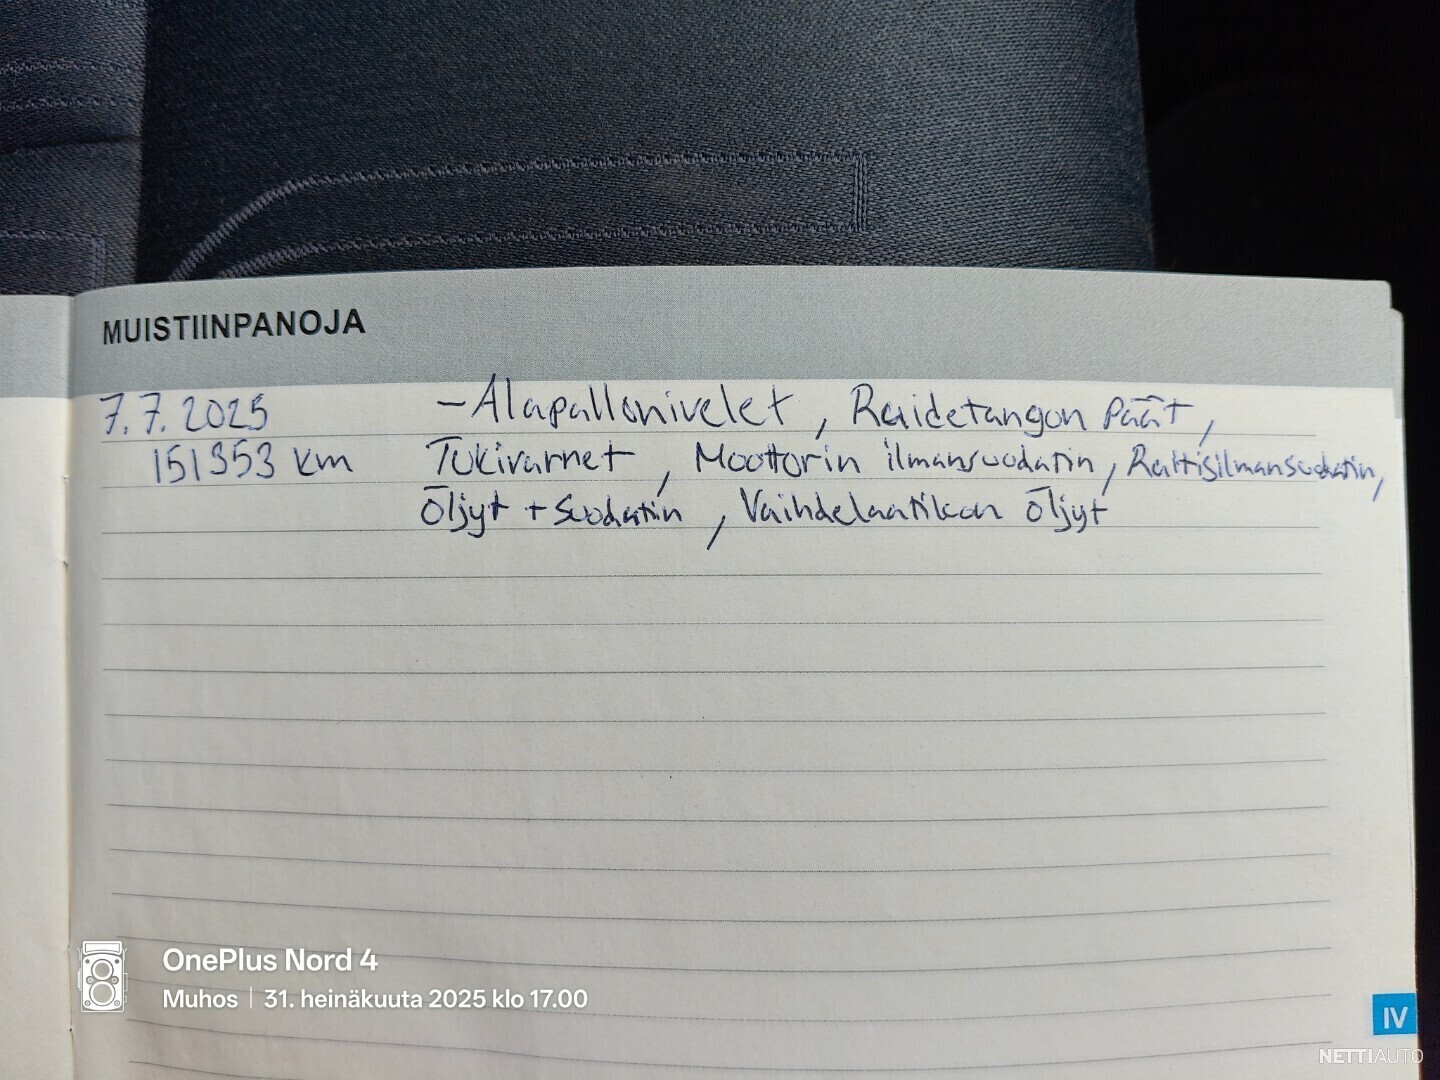 MUISTIINPANOJA
7.7.2025 -Alapallonivelet, Raidetangon päät,
151353 km Tukivarret, Moottorin ilmansuodatin, Raitisilmansuodatin,
Öljyt + Suodatin, Vaihdelaatikon öljyt
OnePlus Nord 4
Muhos | 31. heinäkuuta 2025 klo 17.00
IV
NETTIAUTO